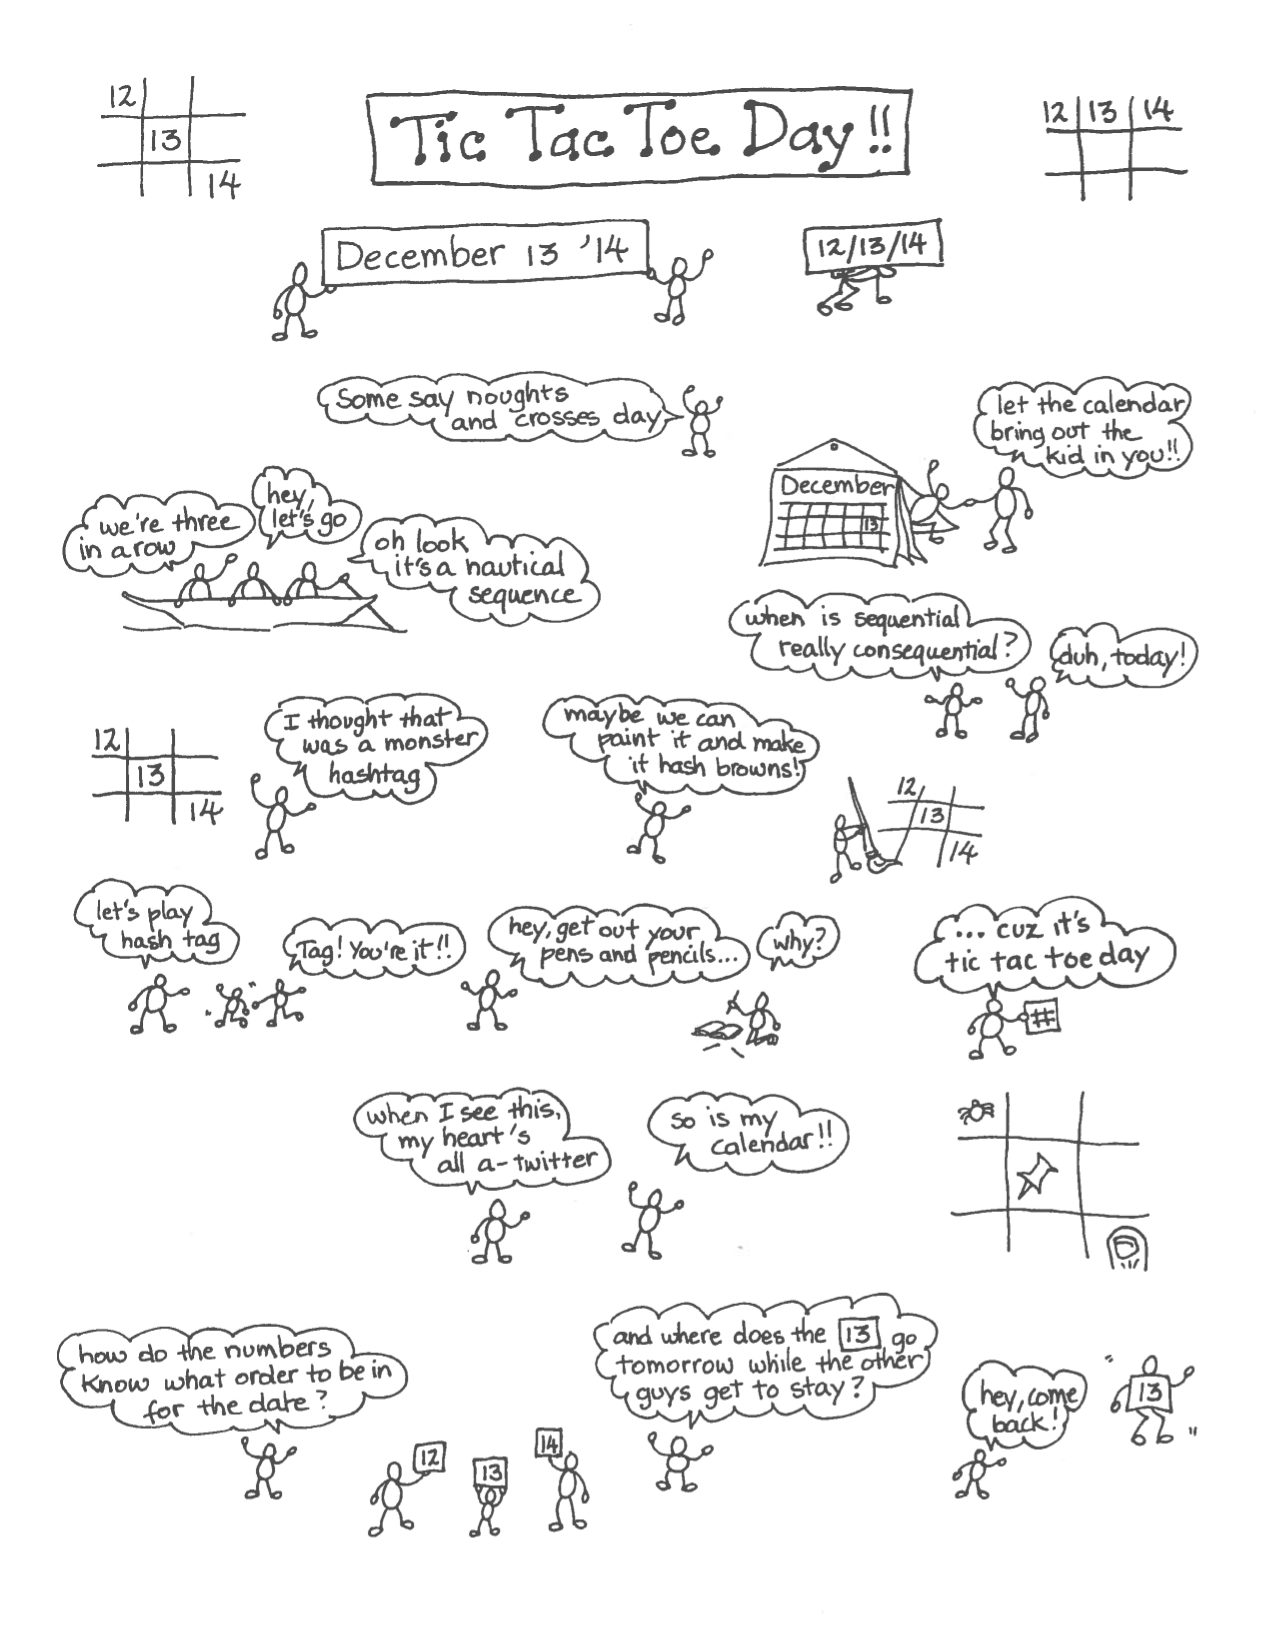 12
13
14
Tic Tac Toe Day!!
12 13 14
December 13 '14
12/13/14
Some say noughts
and crosses day
let the calendar
bring out the
kid in you!!
December
13
we're three
in a row
hey,
let's go
oh look
it's a nautical
sequence
when is sequential
really consequential?
duh, today!
12
13
14
I thought that
was a monster
hashtag
maybe we can
paint it and make
it hash browns!
12
13
14
let's play
hash tag
Tag! You're it!!
hey, get out your
pens and pencils...
why?
... cuz it's
tic tac toe day
#
when I see this,
my heart's
all a-twitter
so is my
calendar!!
how do the numbers
know what order to be in
for the date?
12
13
14
and where does the 13 go
tomorrow while the other
guys get to stay?
hey, come
back!
13